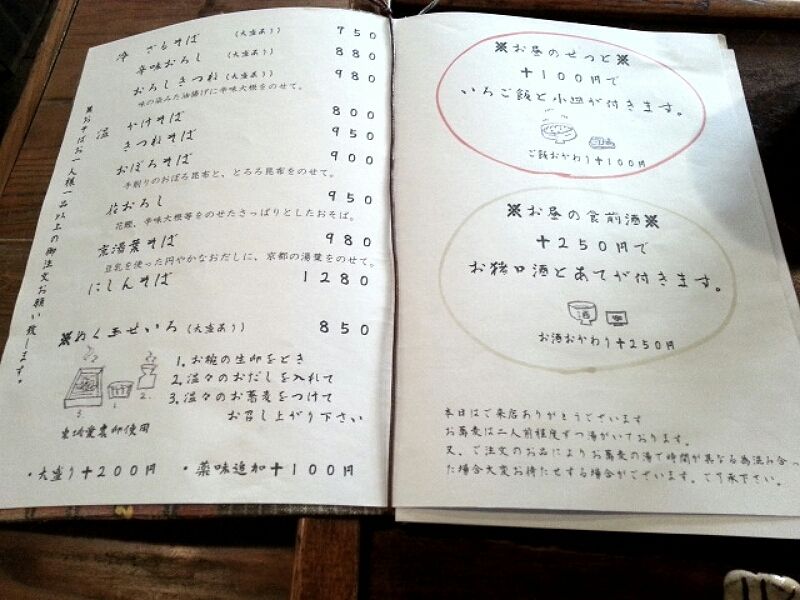 冷 ざるそば (大盛あり) 750
辛味おろし (大盛あり) 880
おろしきつね (大盛あり) 980
味の染みた油揚げに辛味大根をのせて。
温 かけそば 800
きつねそば 950
おぼろそば 900
手削りのおぼろ昆布と、とろろ昆布をのせて。
花おろし 950
花鰹、辛味大根等をのせたさっぱりとしたおそば。
京湯葉そば 980
豆乳を使った円やかなおだしに、京都の湯葉をのせて。
にしんそば 1280
※ぬく玉せいろ (大盛あり) 850
1.お椀の生卵をとき
2.温々のおだしを入れて
3.温々のお蕎麦をつけて
お召し上がり下さい
3. 1. 2.
農卵使用
・大盛り+200円 ・薬味追加+100円
※おそばお一人様一品以上の御注文お願い致します。
※お昼のせっと※
+100円で
いろご飯と小皿が付きます。
ご飯おかわり+100円
※お昼の食前酒※
+250円で
お猪口酒とあてが付きます。
酒
お酒おかわり+250円
本日はご来店ありがとうございます
お蕎麦は二人前程度ずつ湯がいております。
又、ご注文のお品によりお蕎麦の湯で時間が異なる為混み合っ
た場合大変お待たせする場合がございます。ご了承下さい。